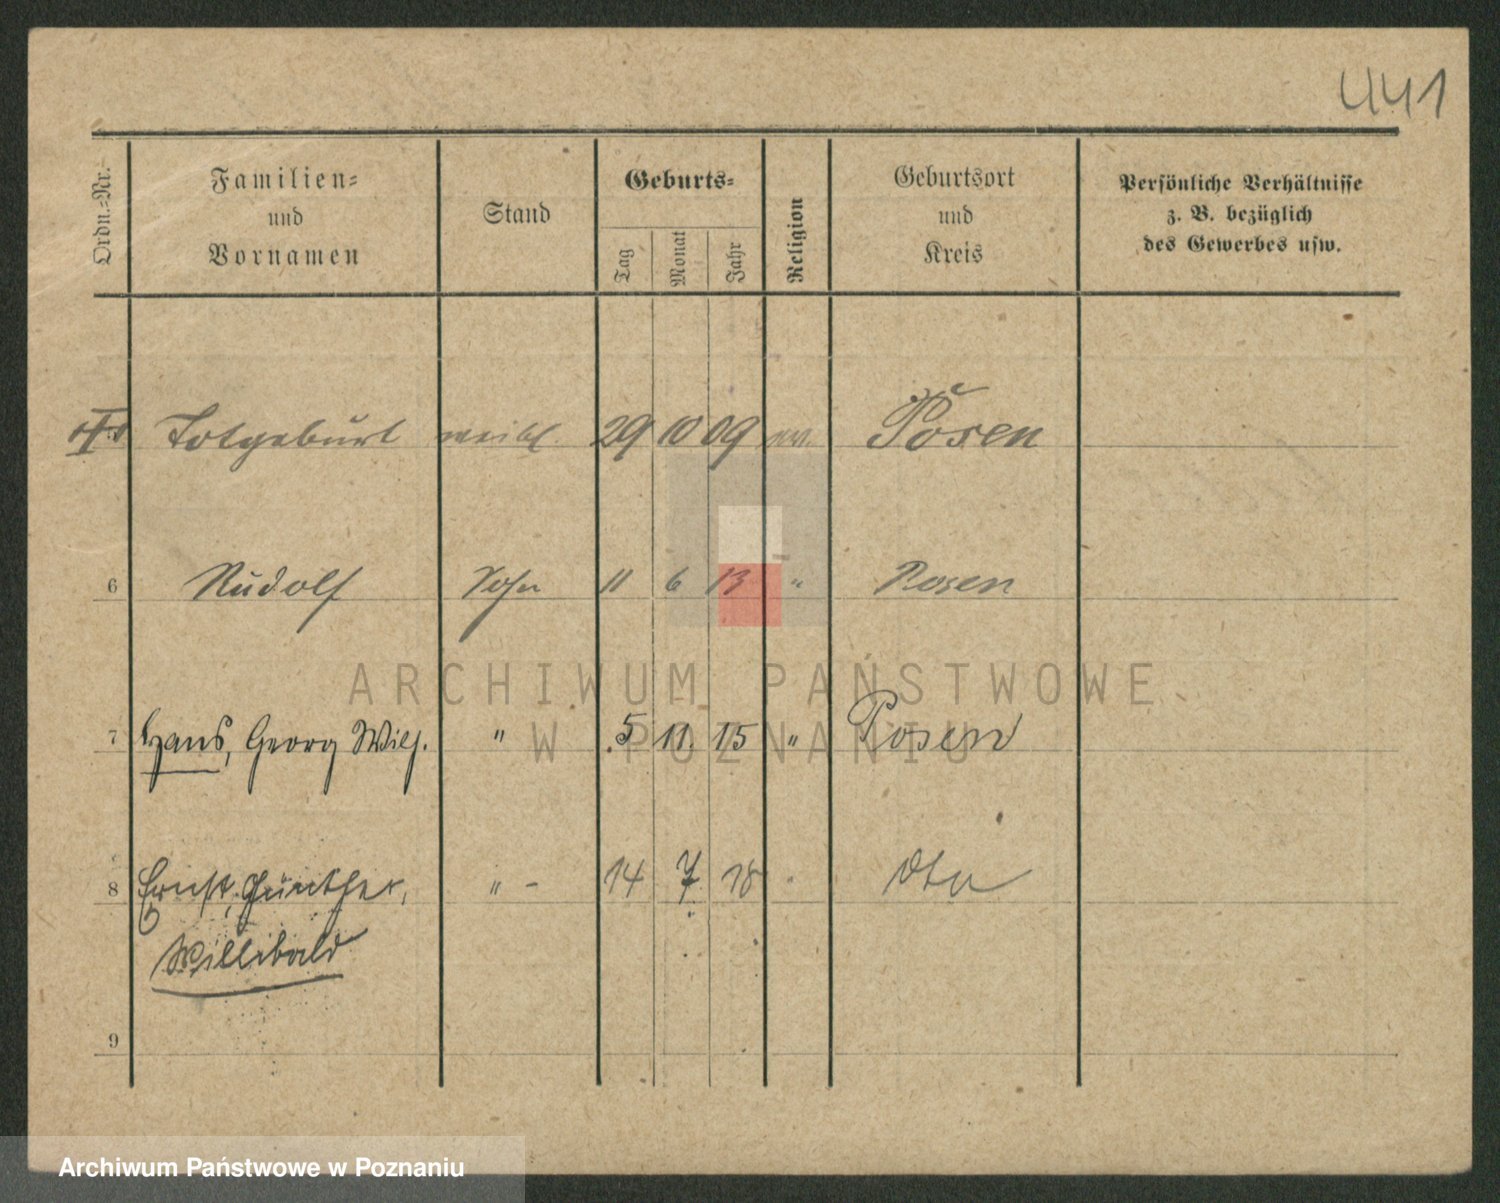 441
Ordn.-Nr.
Familien-
und
Vornamen
Stand
Geburts-
Tag
Monat
Jahr
Religion
Geburtsort
und
Kreis
Persönliche Verhältnisse
z. B. bezüglich
des Gewerbes usw.
Totgeburt weibl. 29 10 09 ev. Posen
6 Rudolf Sohn 11 6 13 " Posen
7 Hans, Georg Wilh. " 5 11. 15 " Posen
8 Ernst, Günther, " - 14 7 18 " dto
Willibald
9
ARCHIWUM PAŃSTWOWE
W POZNANIU
Archiwum Państwowe w Poznaniu